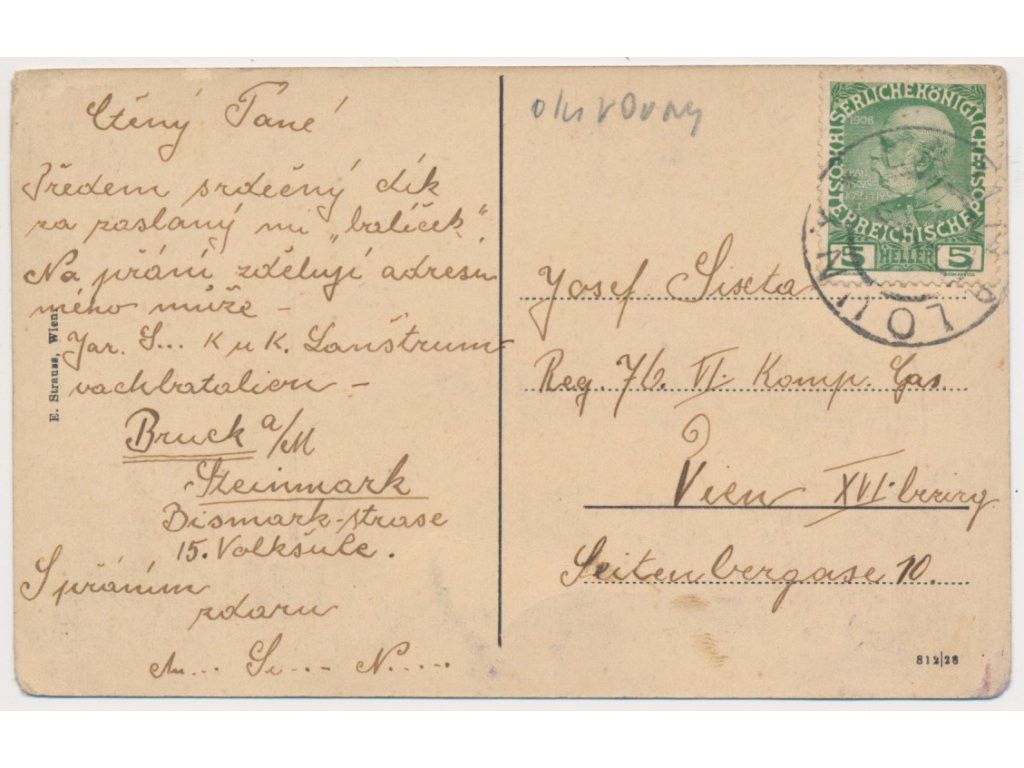 Ctěný Pane
Předem srdečný dík
za zaslaný mi „balíček".
Na přání zděluji adresu
mého muže –
Jar. S... K u K. Lanštrum
vachbatalion –
Bruck a/M
Steinmark
Bismark-strase
15. Volkšule.
S přáním
zdaru
M... Si... N.....
E. Strauss, Wien
Josef Siseta
Reg. 76. VI Komp. Gas.
Wien XVI.
Seitenbergase 10.
812|26
KAISERLICHE KÖNIGLICHE
ÖSTERREICHISCHE POST
1908
5 HELLER 5
LOUN